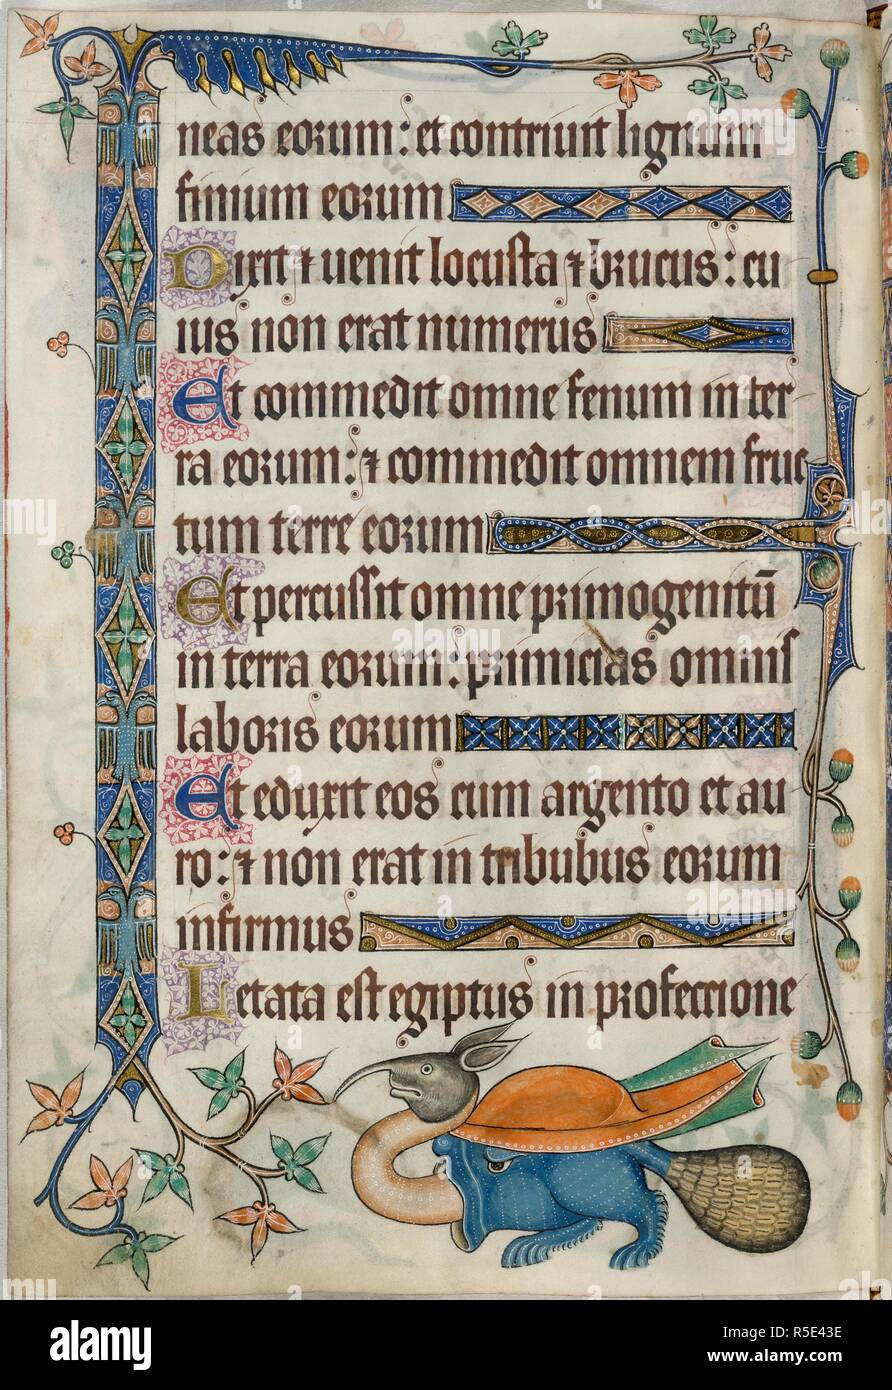 neas eorum: et contriuit lignum
finium eorum
Dixit ⁊ uenit locusta ⁊ brucus: cu
ius non erat numerus
Et commedit omne fenum in ter
ra eorum: ⁊ commedit omnem fruc
tum terre eorum
Et percussit omne primogenitū
in terra eorum: primicias omnis
laboris eorum
Et eduxit eos cum argento et au
ro: ⁊ non erat in tribubus eorum
infirmus
Letata est egiptus in profeccione
alamy
Image ID: R5E43E
www.alamy.com